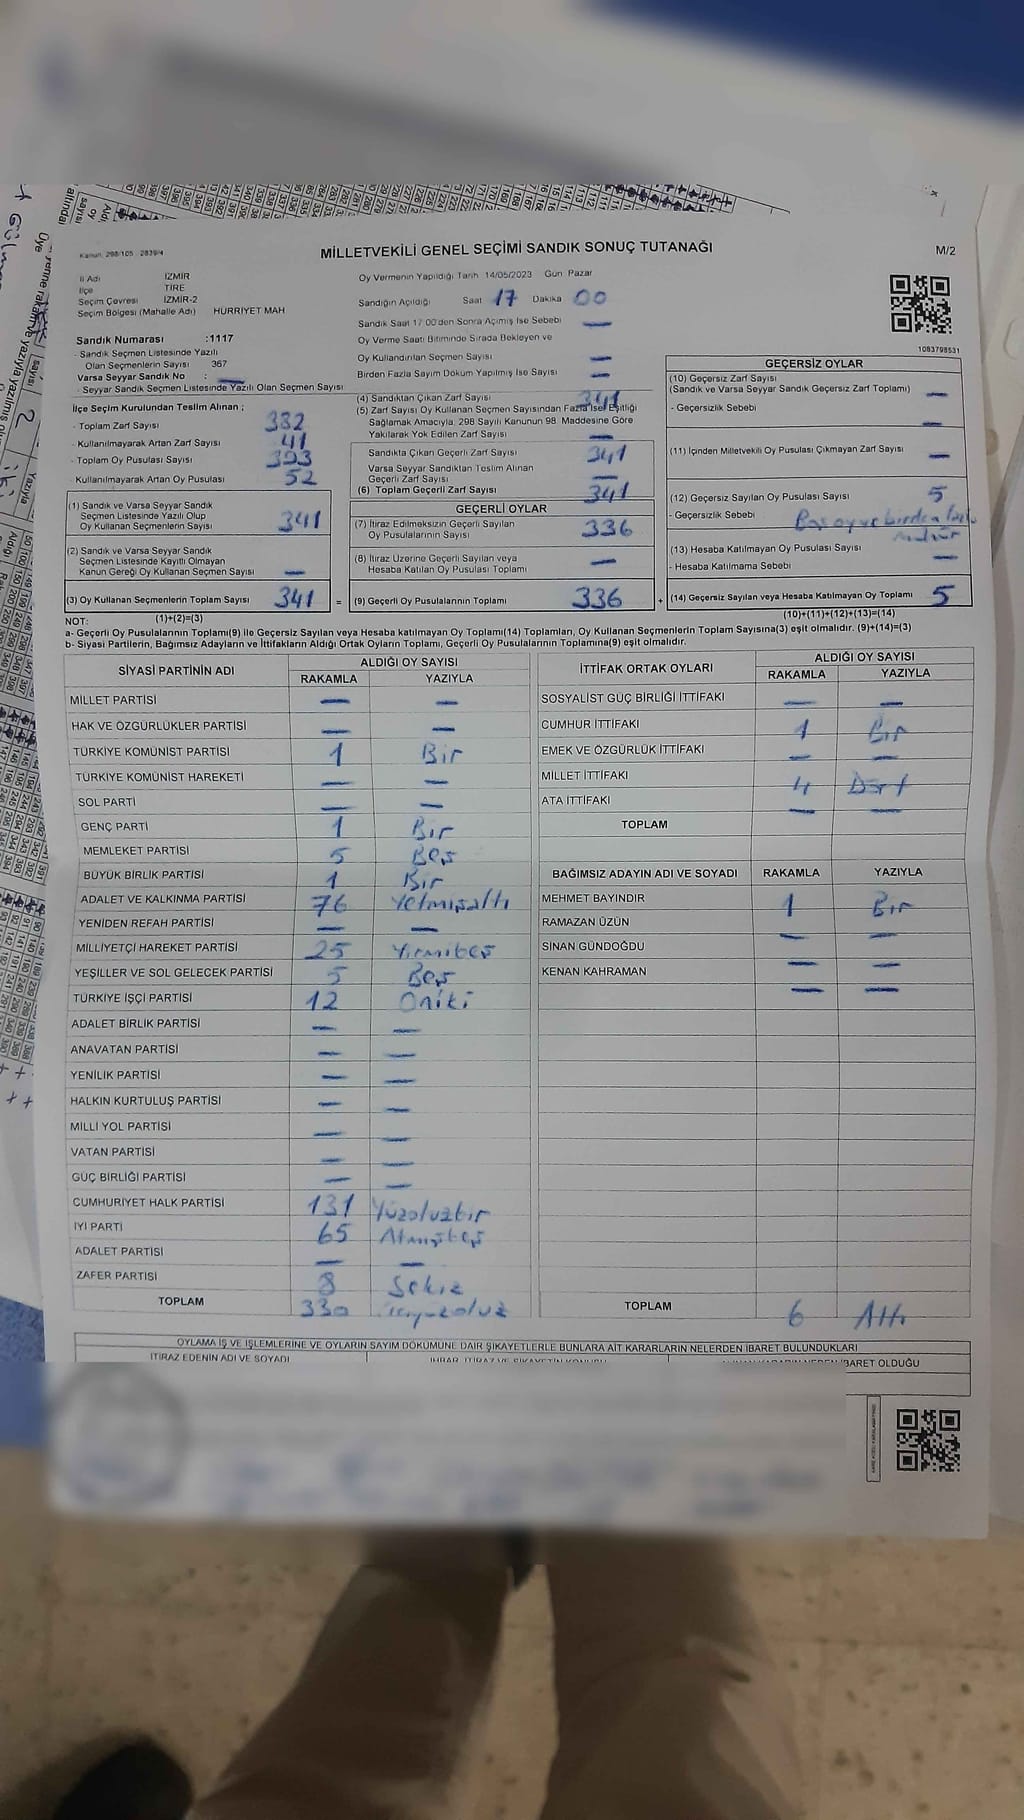 Kanun: 298/105 - 2839/4
MİLLETVEKİLİ GENEL SEÇİMİ SANDIK SONUÇ TUTANAĞI
M/2
İl Adı İZMİR
İlçe TİRE
Seçim Çevresi İZMİR-2
Seçim Bölgesi (Mahalle Adı) HÜRRİYET MAH
Sandık Numarası :1117
- Sandık Seçmen Listesinde Yazılı
Olan Seçmenlerin Sayısı 367
Varsa Seyyar Sandık No : —
- Seyyar Sandık Seçmen Listesinde Yazılı Olan Seçmen Sayısı
Oy Vermenin Yapıldığı Tarih 14/05/2023 Gün Pazar
Sandığın Açıldığı Saat 17 Dakika 00
Sandık Saat 17:00'den Sonra Açılmış İse Sebebi —
Oy Verme Saati Bitiminde Sırada Bekleyen ve
Oy Kullandırılan Seçmen Sayısı —
Birden Fazla Sayım Döküm Yapılmış İse Sayısı —
1083798531
İlçe Seçim Kurulundan Teslim Alınan ;
- Toplam Zarf Sayısı 382
- Kullanılmayarak Artan Zarf Sayısı 41
- Toplam Oy Pusulası Sayısı 393
- Kullanılmayarak Artan Oy Pusulası 52
(1) Sandık ve Varsa Seyyar Sandık
Seçmen Listesinde Yazılı Olup
Oy Kullanan Seçmenlerin Sayısı 341
(2) Sandık ve Varsa Seyyar Sandık
Seçmen Listesinde Kayıtlı Olmayan
Kanun Gereği Oy Kullanan Seçmen Sayısı —
(3) Oy Kullanan Seçmenlerin Toplam Sayısı 341 =
(4) Sandıktan Çıkan Zarf Sayısı 341
(5) Zarf Sayısı Oy Kullanan Seçmen Sayısından Fazla İse, Eşitliği
Sağlamak Amacıyla; 298 Sayılı Kanunun 98. Maddesine Göre
Yakılarak Yok Edilen Zarf Sayısı —
Sandıkta Çıkan Geçerli Zarf Sayısı 341
Varsa Seyyar Sandıktan Teslim Alınan
Geçerli Zarf Sayısı —
(6) Toplam Geçerli Zarf Sayısı 341
GEÇERLİ OYLAR
(7) İtiraz Edilmeksizin Geçerli Sayılan
Oy Pusulalarının Sayısı 336
(8) İtiraz Üzerine Geçerli Sayılan veya
Hesaba Katılan Oy Pusulası Toplamı —
(9) Geçerli Oy Pusulalarının Toplamı 336 +
GEÇERSİZ OYLAR
(10) Geçersiz Zarf Sayısı
(Sandık ve Varsa Seyyar Sandık Geçersiz Zarf Toplamı) —
- Geçersizlik Sebebi —
(11) İçinden Milletvekili Oy Pusulası Çıkmayan Zarf Sayısı —
(12) Geçersiz Sayılan Oy Pusulası Sayısı 5
- Geçersizlik Sebebi birden fazla
mühür
(13) Hesaba Katılmayan Oy Pusulası Sayısı —
- Hesaba Katılmama Sebebi
(14) Geçersiz Sayılan veya Hesaba Katılmayan Oy Toplamı 5
NOT: (1)+(2)=(3) (10)+(11)+(12)+(13)=(14)
a- Geçerli Oy Pusulalarının Toplamı(9) ile Geçersiz Sayılan veya Hesaba katılmayan Oy Toplamı(14) Toplamları, Oy Kullanan Seçmenlerin Toplam Sayısına(3) eşit olmalıdır. (9)+(14)=(3)
b- Siyasi Partilerin, Bağımsız Adayların ve İttifakların Aldığı Ortak Oyların Toplamı, Geçerli Oy Pusulalarının Toplamına(9) eşit olmalıdır.
SİYASİ PARTİNİN ADI ALDIĞI OY SAYISI
RAKAMLA YAZIYLA
MİLLET PARTİSİ — —
HAK VE ÖZGÜRLÜKLER PARTİSİ — —
TÜRKİYE KOMÜNİST PARTİSİ 1 Bir
TÜRKİYE KOMÜNİST HAREKETİ — —
SOL PARTİ — —
GENÇ PARTİ 1 Bir
MEMLEKET PARTİSİ 5 Beş
BÜYÜK BİRLİK PARTİSİ 1 Bir
ADALET VE KALKINMA PARTİSİ 76 Yetmişaltı
YENİDEN REFAH PARTİSİ — —
MİLLİYETÇİ HAREKET PARTİSİ 25 Yirmibeş
YEŞİLLER VE SOL GELECEK PARTİSİ 5 Beş
TÜRKİYE İŞÇİ PARTİSİ 12 Oniki
ADALET BİRLİK PARTİSİ — —
ANAVATAN PARTİSİ — —
YENİLİK PARTİSİ — —
HALKIN KURTULUŞ PARTİSİ — —
MİLLİ YOL PARTİSİ — —
VATAN PARTİSİ — —
GÜÇ BİRLİĞİ PARTİSİ — —
CUMHURİYET HALK PARTİSİ 131 Yüzotuzbir
İYİ PARTİ 65 Atmışbeş
ADALET PARTİSİ — —
ZAFER PARTİSİ 8 Sekiz
TOPLAM 330 üçyüzotuz
İTTİFAK ORTAK OYLARI ALDIĞI OY SAYISI
RAKAMLA YAZIYLA
SOSYALİST GÜÇ BİRLİĞİ İTTİFAKI — —
CUMHUR İTTİFAKI 1 Bir
EMEK VE ÖZGÜRLÜK İTTİFAKI — —
MİLLET İTTİFAKI 4 Dört
ATA İTTİFAKI — —
TOPLAM
BAĞIMSIZ ADAYIN ADI VE SOYADI RAKAMLA YAZIYLA
MEHMET BAYINDIR 1 Bir
RAMAZAN ÜZÜN — —
SİNAN GÜNDOĞDU — —
KENAN KAHRAMAN — —
TOPLAM 6 Altı
OYLAMA İŞ VE İŞLEMLERİNE VE OYLARIN SAYIM DÖKÜMÜNE DAİR ŞİKAYETLERLE BUNLARA AİT KARARLARIN NELERDEN İBARET BULUNDUKLARI
İTİRAZ EDENİN ADI VE SOYADI
İBARET OLDUĞU